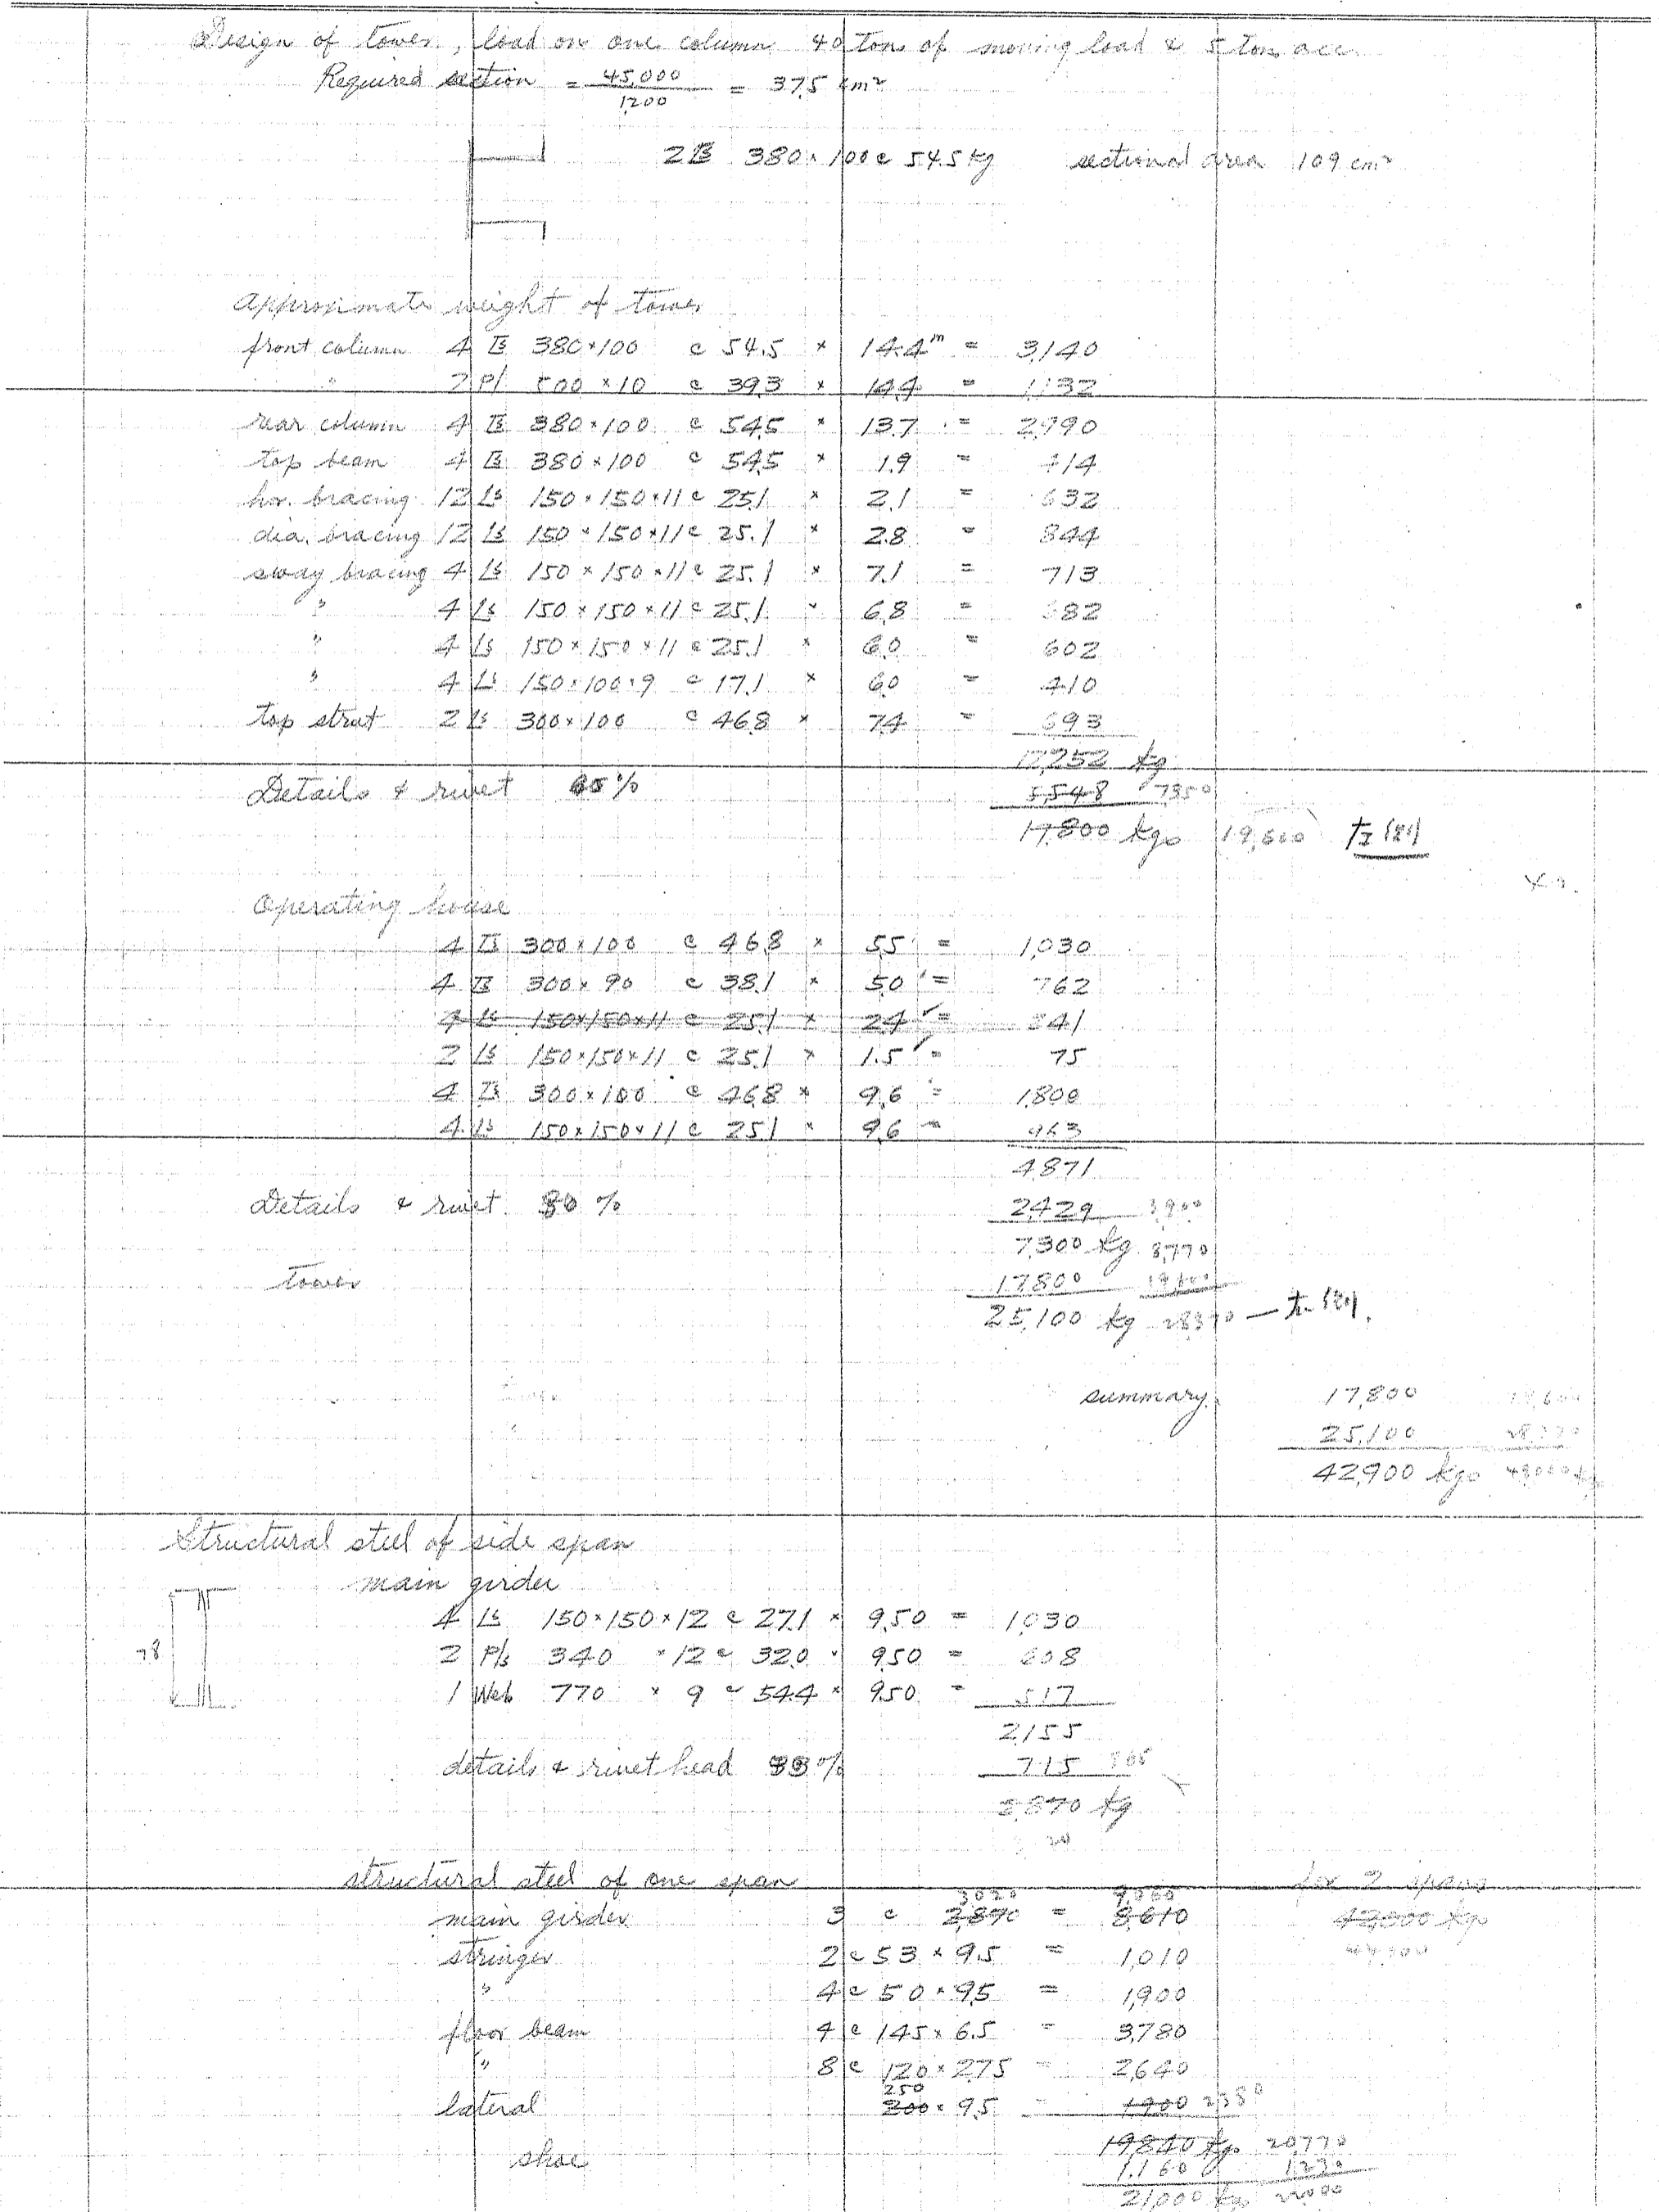 Design of tower, load on one column 40 tons of moving load & 5 ton acc.
Required section = 45,000 / 1200 = 37.5 cm²
380 × 100 @ 54.5 kg sectional area 109 cm²
Approximate weight of tower
front column 4 380×100 @ 54.5 × 14.4m = 3,140
" 2 Pl 500 × 10 @ 39.3 × 14.4 = 1,132
rear column 4 380×100 @ 54.5 × 13.7 = 2,990
top beam 4 380×100 @ 54.5 × 1.9 = 414
hor. bracing 12 Ls 150×150×11 @ 25.1 × 2.1 = 632
dia. bracing 12 Ls 150×150×11 @ 25.1 × 2.8 = 844
sway bracing 4 Ls 150×150×11 @ 25.1 × 7.1 = 713
" 4 Ls 150×150×11 @ 25.1 × 6.8 = 682
" 4 Ls 150×150×11 @ 25.1 × 6.0 = 602
" 4 Ls 150×100×9 @ 17.1 × 6.0 = 410
top strut 2 300×100 @ 46.8 × 7.4 = 693
12,252 kg
Details & rivet %
5,548 7350
17,800 kgs 19,600
Operating house
4 300×100 @ 46.8 × 5.5 = 1,030
4 300×90 @ 38.1 × 5.0 = 762
4 Ls 150×150×11 @ 25.1 × 2.4 = 241
2 Ls 150×150×11 @ 25.1 × 1.5 = 75
4 300×100 @ 46.8 × 9.6 = 1,800
4 Ls 150×150×11 @ 25.1 × 9.6 = 963
4,871
Details & rivet 80 %
2,429 3,900
7,300 kg 8,770
Tower 17,800 19,600
25,100 kg 28370
summary 17,800 19,600
25,100 28,370
42,900 kgs
Structural steel of side span
main girder
4 Ls 150×150×12 @ 27.1 × 9.50 = 1,030
78 2 Pls 340 × 12 @ 32.0 × 9.50 = 608
1 Web 770 × 9 @ 54.4 × 9.50 = 517
2,155
details & rivet head %
715 865
2,870 kg
structural steel of one span for 2 spans
3020 9,060
main girder 3 @ 2,870 = 8,610 42,000 kgs
stringer 2 @ 53 × 9.5 = 1,010
" 4 @ 50 × 9.5 = 1,900
floor beam 4 @ 145 × 6.5 = 3,780
" 8 @ 120 × 2.75 = 2,640
250
lateral 200 × 9.5 = 1,900 2,380
19,840 kgs 20,770
shoe 1,160 1,230
21,000 kgs 22,000